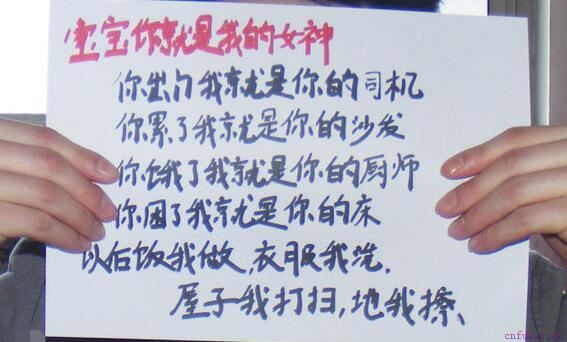 宝宝你就是我的女神
你出门我就是你的司机
你累了我就是你的沙发
你饿了我就是你的厨师
你困了我就是你的床
以后饭我做,衣服我洗.
屋子我打扫,地我擦、